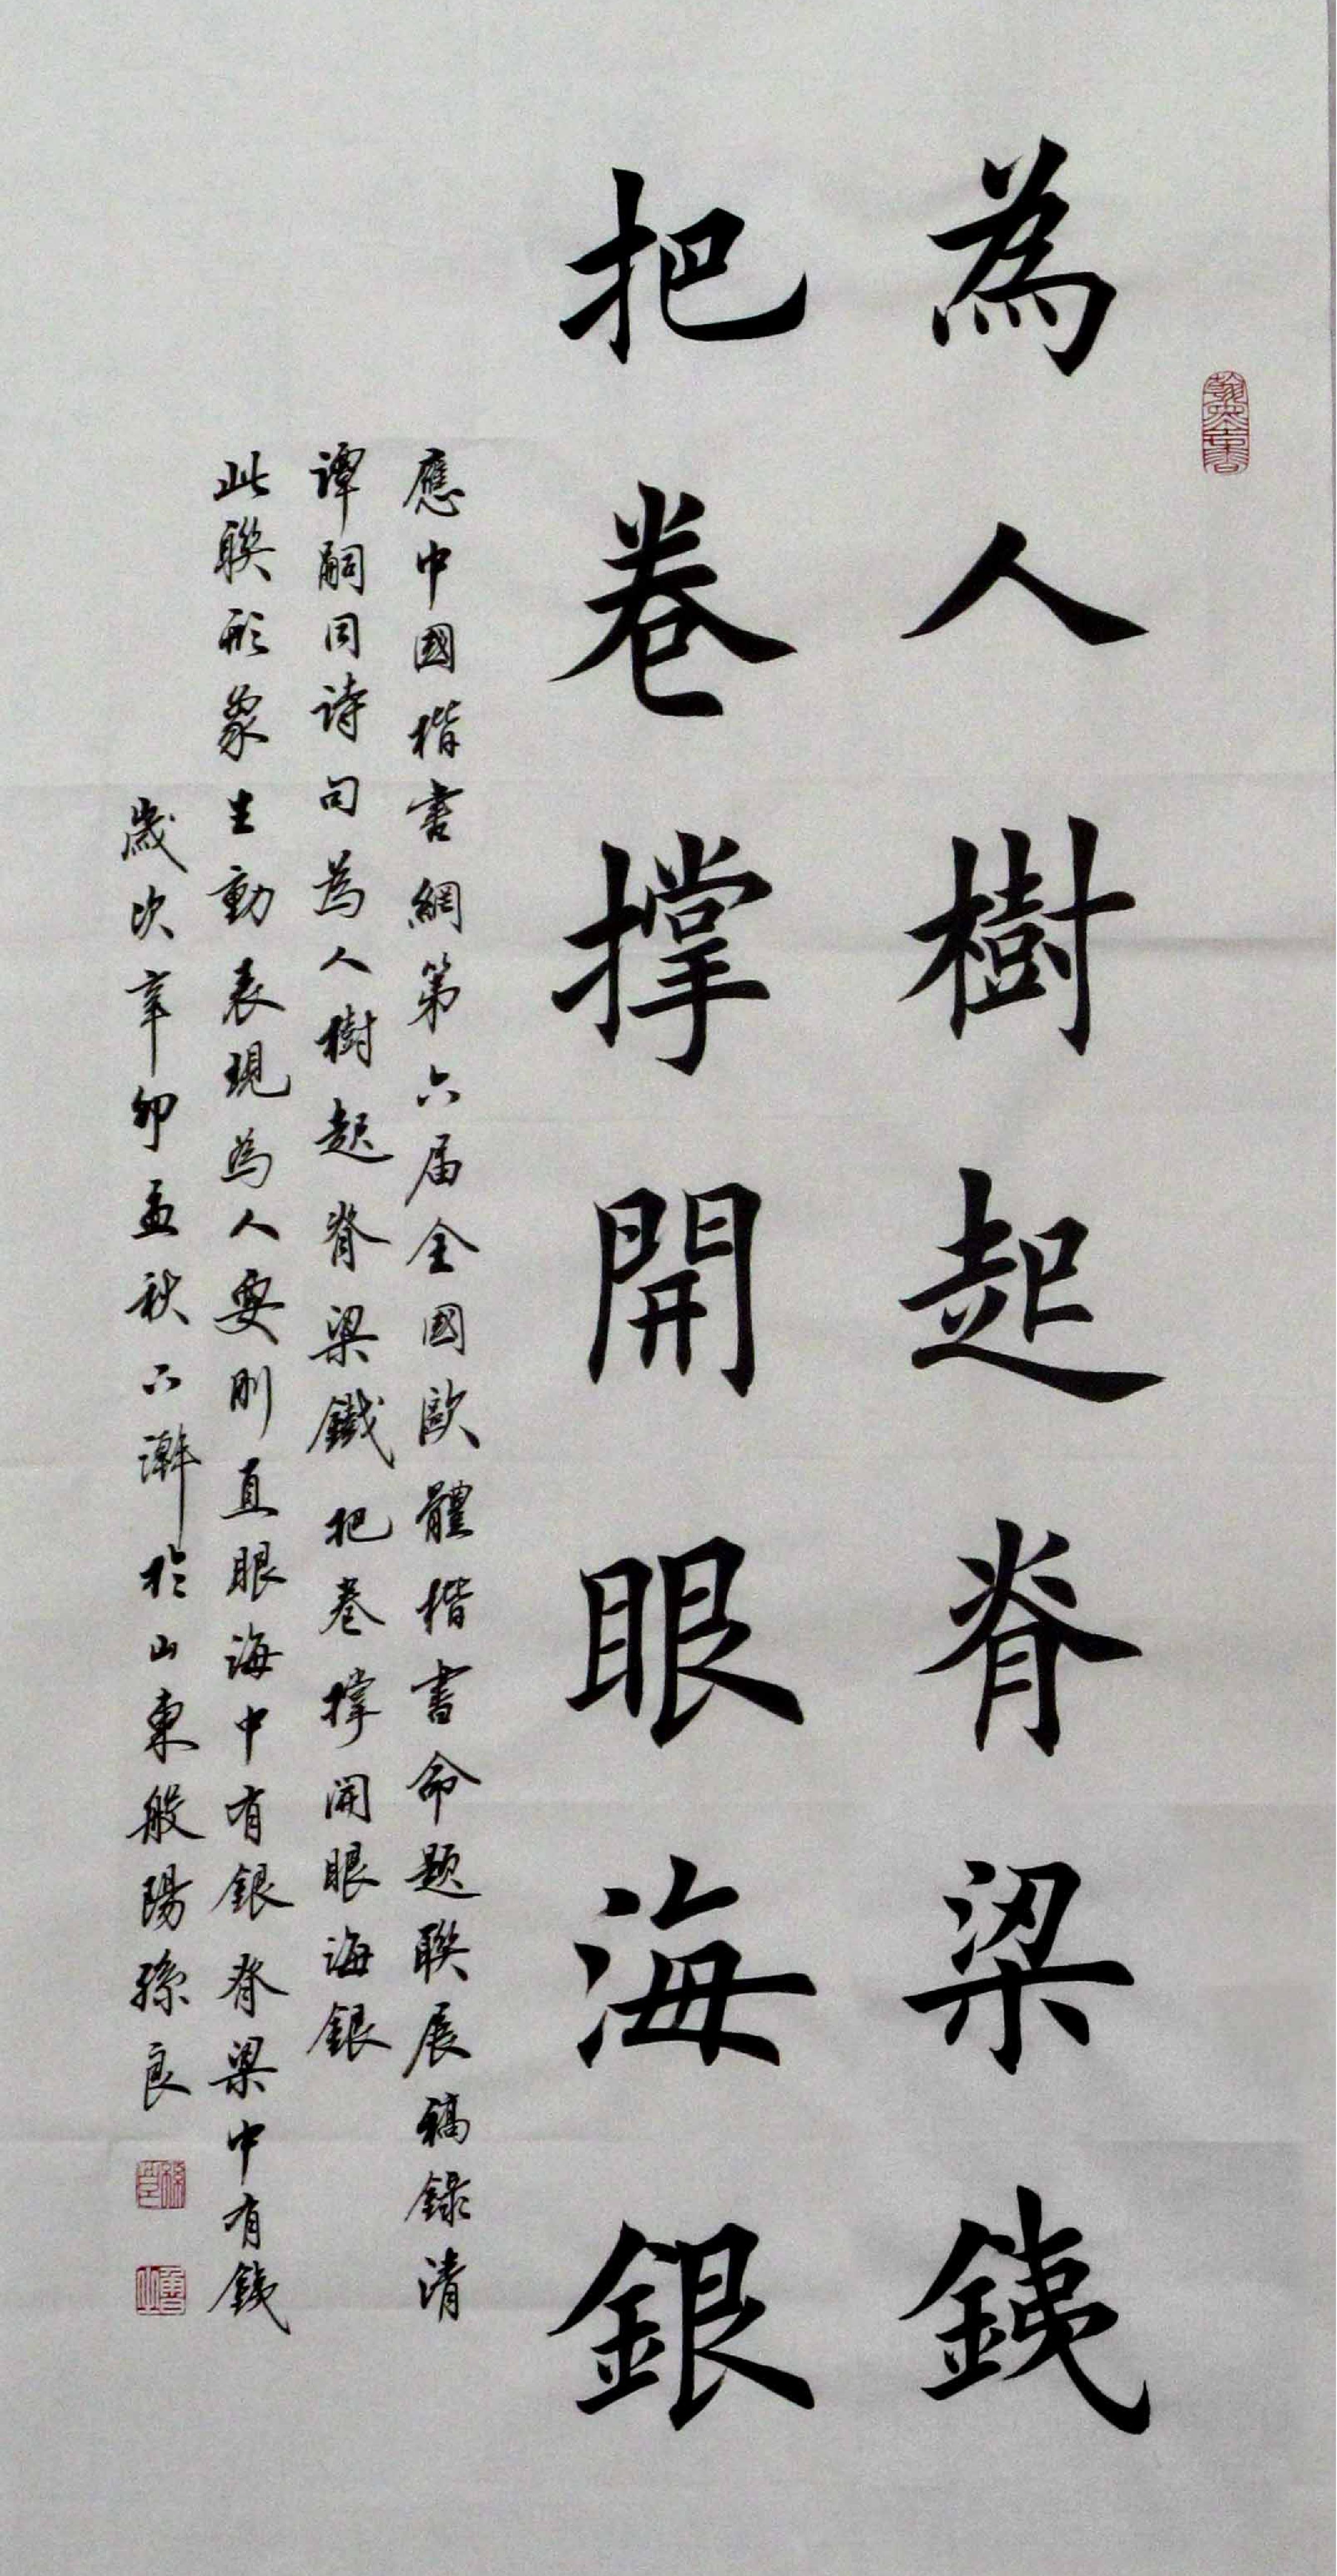 為人樹起脊梁銕
把卷撐開眼海銀
應中國楷書網第六届全國歐體楷書命題聯展稿錄清
譚嗣同詩句為人樹起脊梁鐵把卷撐開眼海銀
此聯形象生動表現為人要剛直眼海中有銀脊梁中有銕
歲次辛卯孟秋六澣於山東般陽孫良